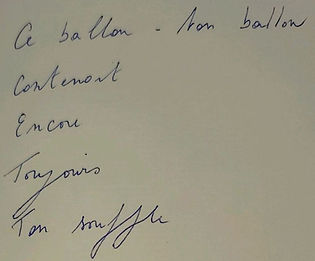 Ce ballon - ton ballon
Contenant
Encore
Toujours
Ton souffle